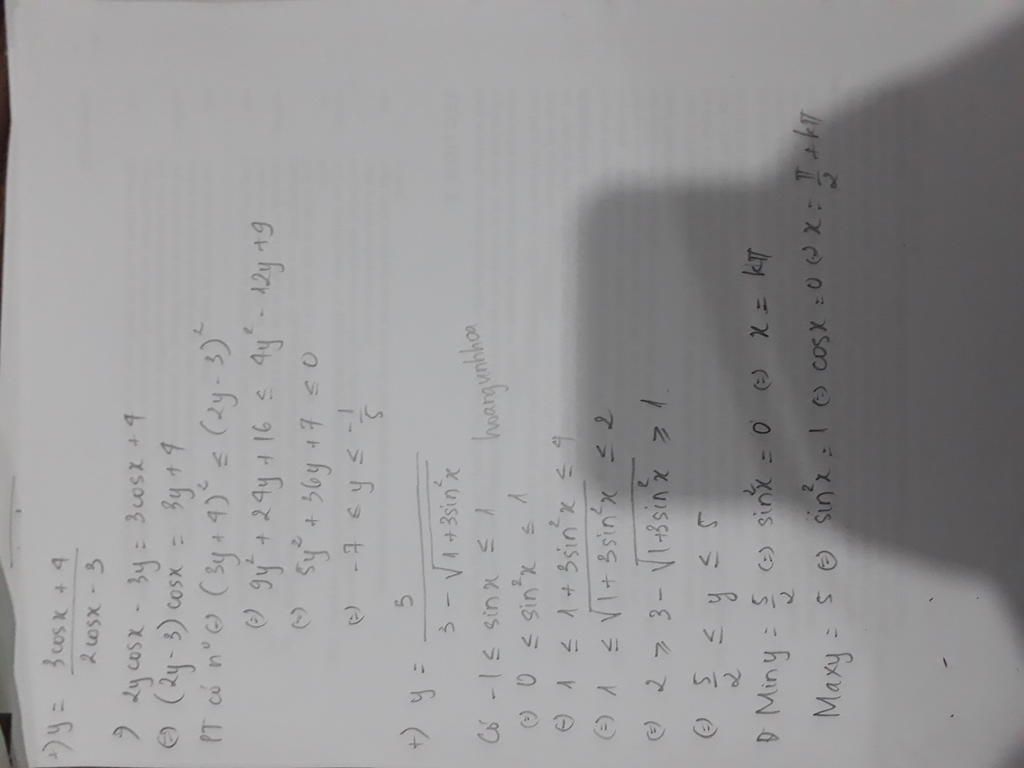 +) y = (3cosx + 4)/(2cosx - 3)
⇒ 2ycosx - 3y = 3cosx + 4
⇔ (2y - 3)cosx = 3y + 4
PT có nº ⇔ (3y + 4)² ≤ (2y - 3)²
⇔ 9y² + 24y + 16 ≤ 4y² - 12y + 9
⇔ 5y² + 36y + 7 ≤ 0
⇔ -7 ≤ y ≤ -1/5
+) y = 5/(3 - √(1 + 3sin²x))
Có -1 ≤ sinx ≤ 1
⇔ 0 ≤ sin²x ≤ 1
⇔ 1 ≤ 1 + 3sin²x ≤ 4
⇔ 1 ≤ √(1 + 3sin²x) ≤ 2
⇔ 2 ≥ 3 - √(1 + 3sin²x) ≥ 1
⇔ 5/2 ≤ y ≤ 5
Min y = 5/2 ⇔ sin²x = 0 ⇔ x = kπ
Max y = 5 ⇔ sin²x = 1 ⇔ cosx = 0 ⇔ x = π/2 + kπ